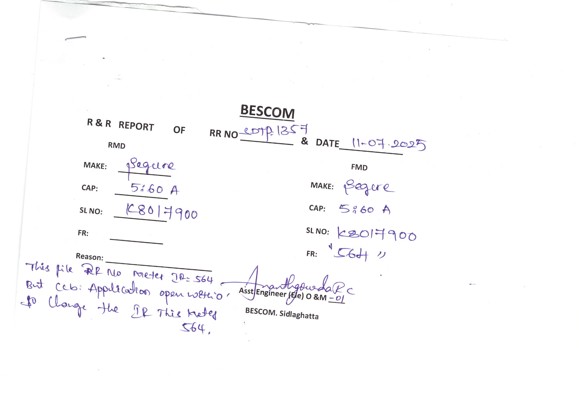 BESCOM
R & R REPORT OF RR NO 1357 & DATE 11-07-2025
RMD
FMD
MAKE: Segure
CAP: 5:60 A
SL NO: K8017900
FR:
Reason:
MAKE: Segure
CAP: 5:60 A
SL NO: K8017900
FR: "564"
This file RR No meter IR=564
But Application open
to change the IR This meter
564.
Asst Engineer (Ele) O & M -01
BESCOM. Sidlaghatta